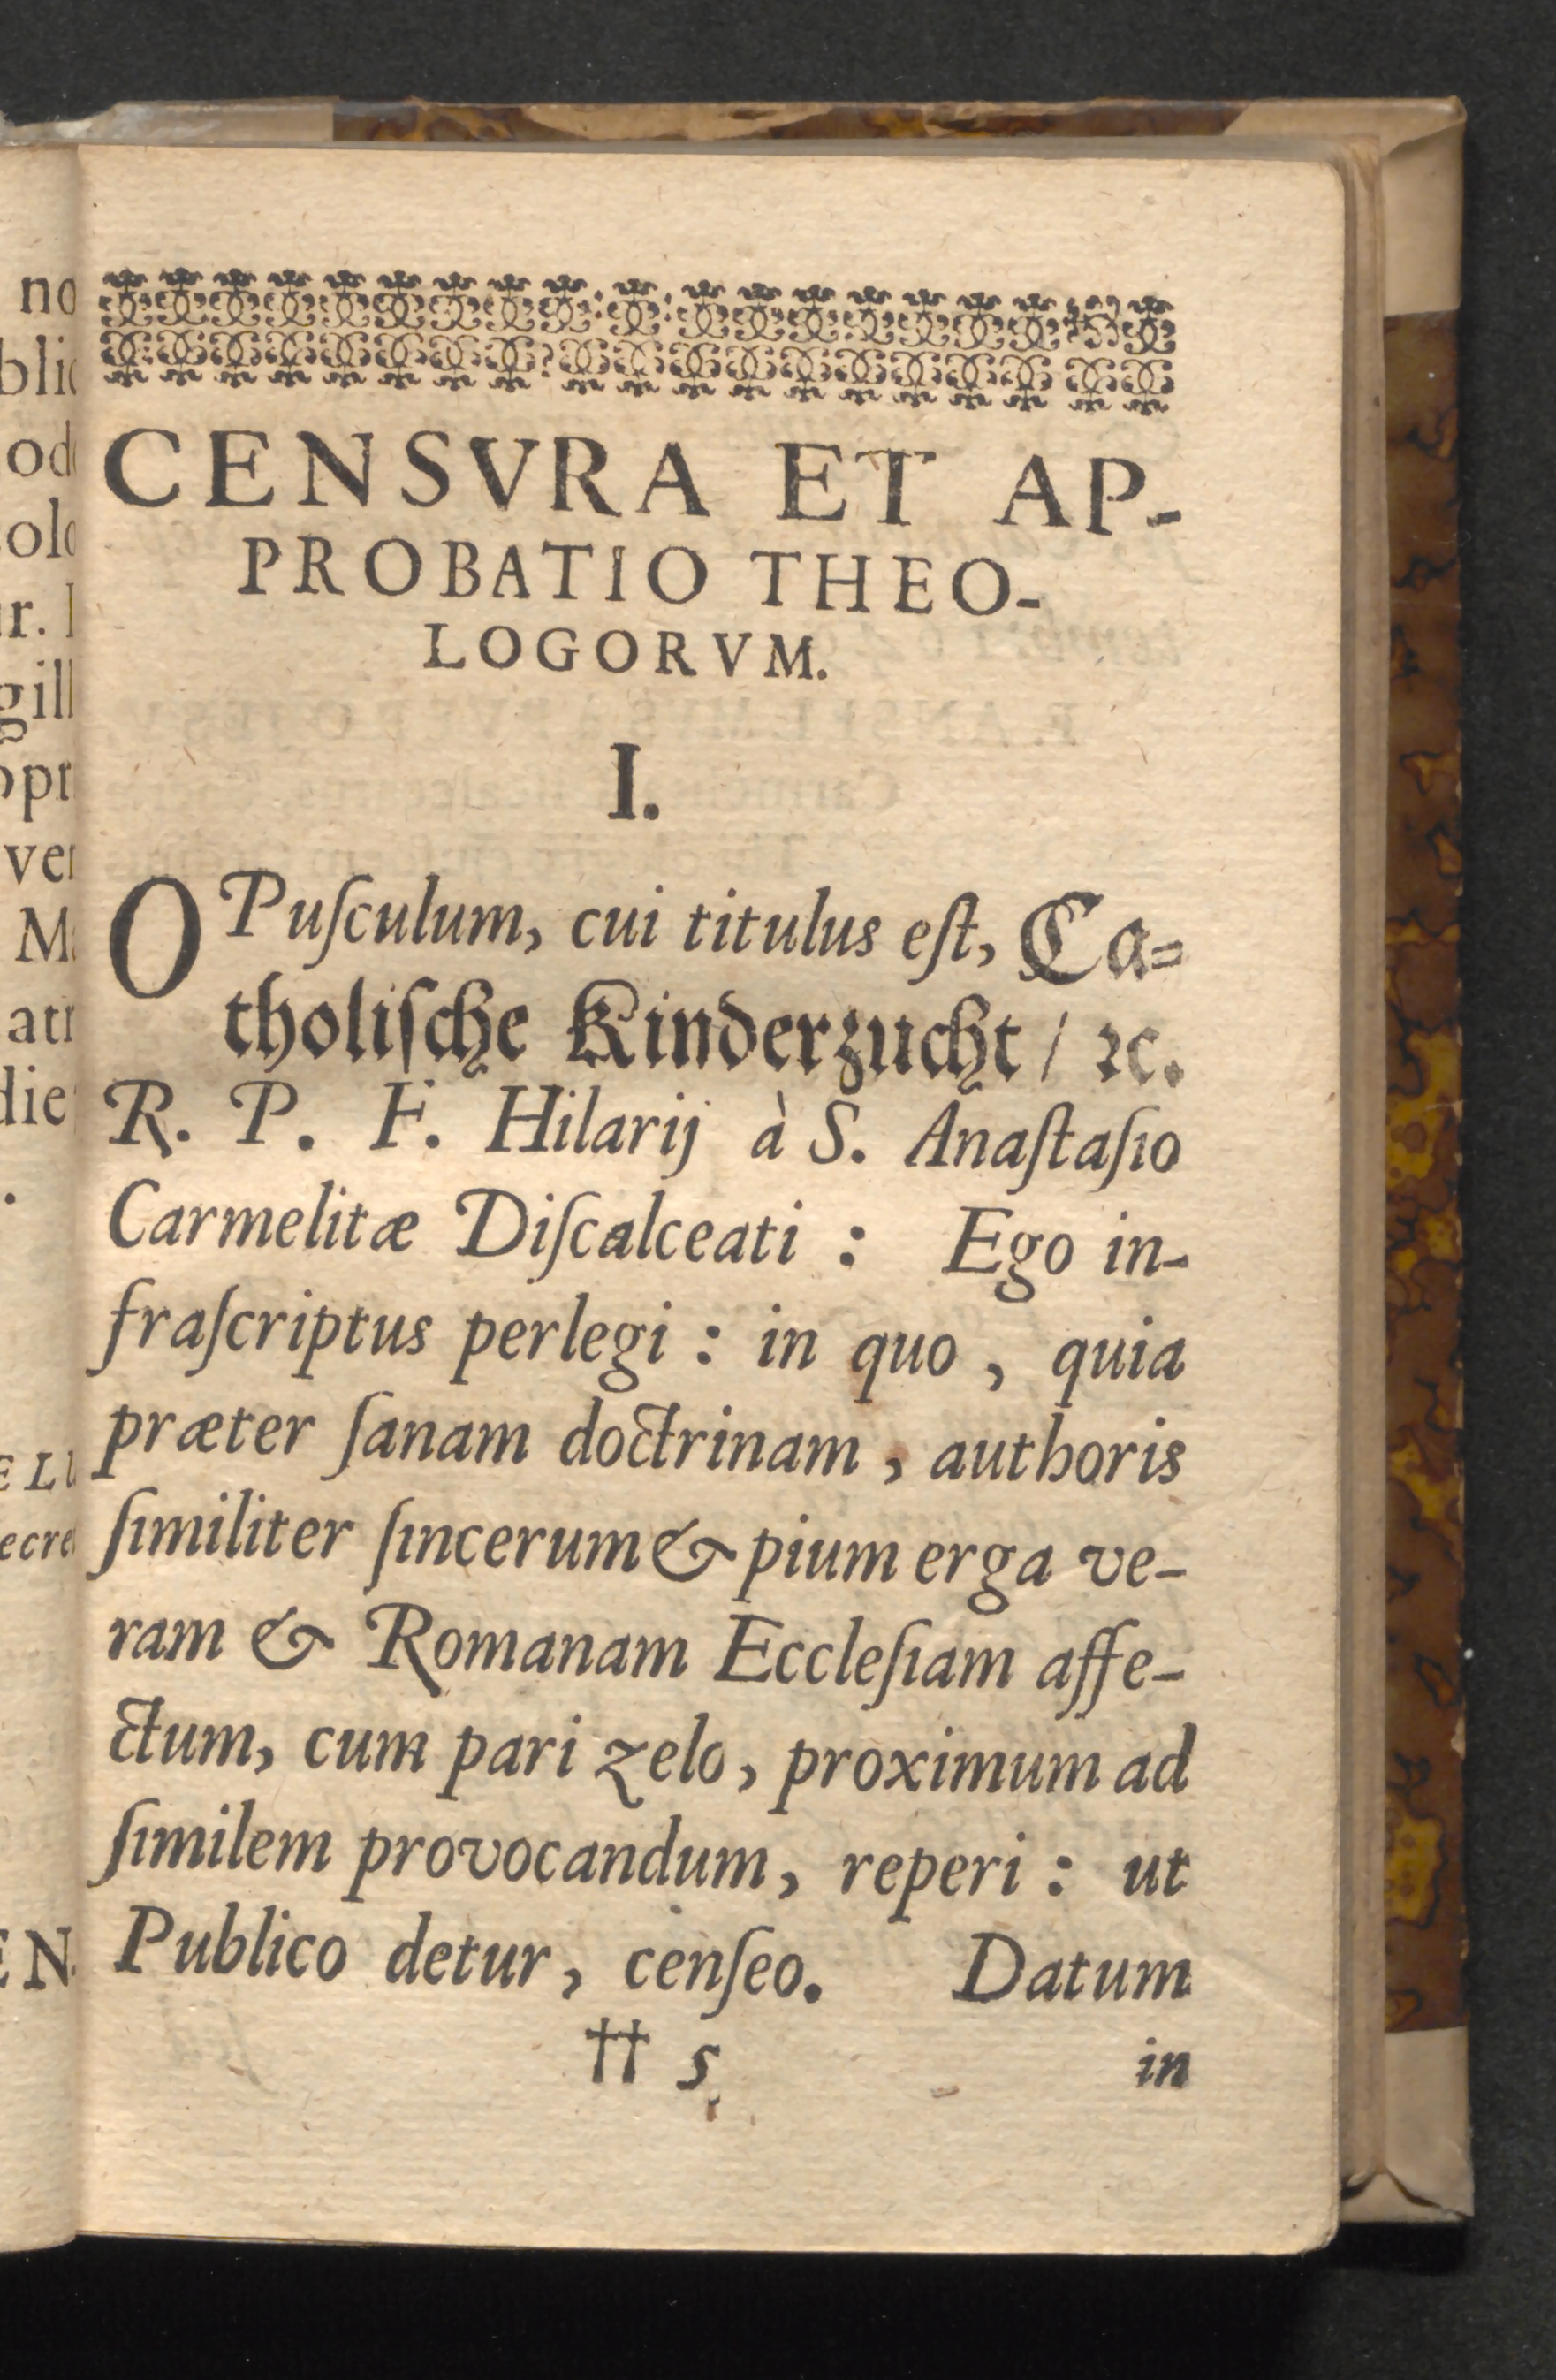 CENSVRA ET AP-
PROBATIO THEO-
LOGORVM.
I.
OPuſculum, cui titulus eſt, Ca-
tholiſche Kinderzucht / ꝛc.
R. P. F. Hilarij à S. Anaſtaſio
Carmelitæ Diſcalceati : Ego in-
fraſcriptus perlegi : in quo , quia
præter ſanam doctrinam , authoris
ſimiliter ſincerum & pium erga ve-
ram & Romanam Eccleſiam affe-
ctum, cum pari zelo , proximum ad
ſimilem provocandum, reperi : ut
Publico detur , cenſeo. Datum
†† 5 in